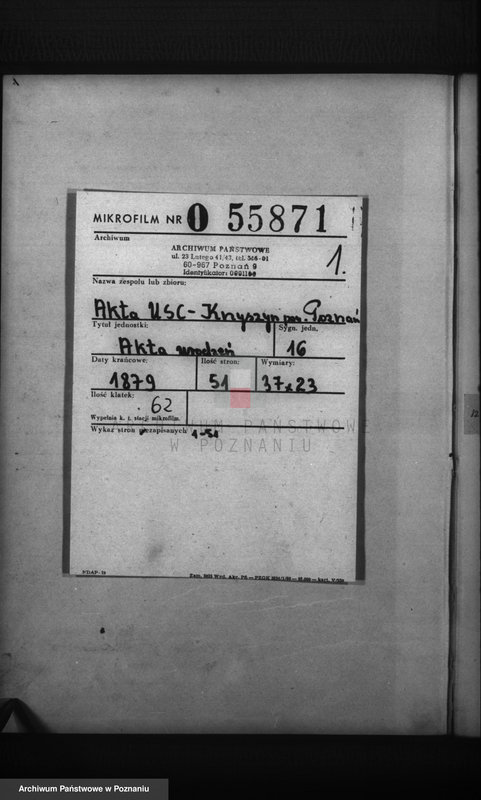 MIKROFILM NR O 55871
1.
Archiwum
ARCHIWUM PAŃSTWOWE
ul. 23 Lutego 41/43, tel. 546-01
60-967 Poznań 9
Identyfikator:
Nazwa zespołu lub zbioru:
Akta USC - Knyszyn pow. Poznań
Tytuł jednostki:
Sygn. jedn.
Akta urodzeń
16
Daty krańcowe:
Ilość stron:
Wymiary:
1879
51
37x23
Ilość klatek:
62
Wypełnia k. t. stacji mikrofilm.
Wykaz stron niezapisanych 1-51
ARCHIWUM PAŃSTWOWE
W POZNANIU
NDAP-19
Archiwum Państwowe w Poznaniu